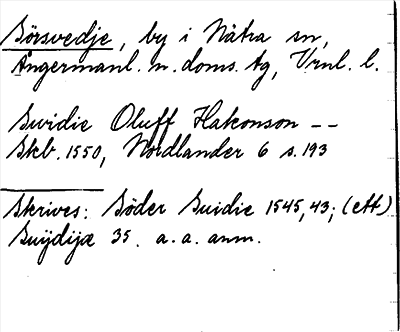 Sörsvedje, by i Nätra sn,
Ångermanl. n. doms. tg, Vrnl. l.
Swidie Oluff Hakonson --
Skb. 1550, Nordlander 6 s. 193
Skrives: Söder Suidie 1545, 43; (ett)
Suijdijæ 35. a. a. anm.